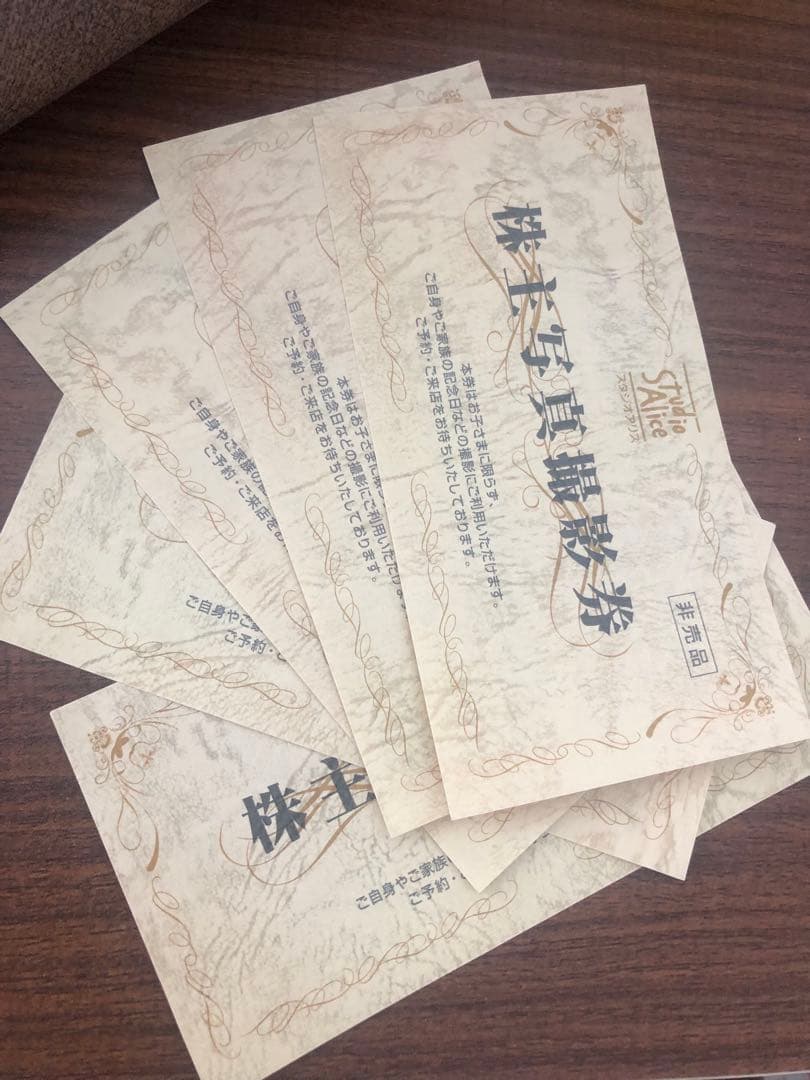 Studio
Alice
スタジオアリス
株主写真撮影券
非売品
本券はお子さまに限らず、
ご自身やご家族の記念日などの撮影にご利用いただけます。
ご予約・ご来店をお待ちいたしております。
本券はお子さまに限ら
ご自身やご家族の記念日などの撮影にご利用いただけ
ご予約・ご来店をお待ちいたしております。
ご自身やご家族の
ご予約・ご来店を
ご自身やご
ご予
株主
ご自身やご家族
ご予約・